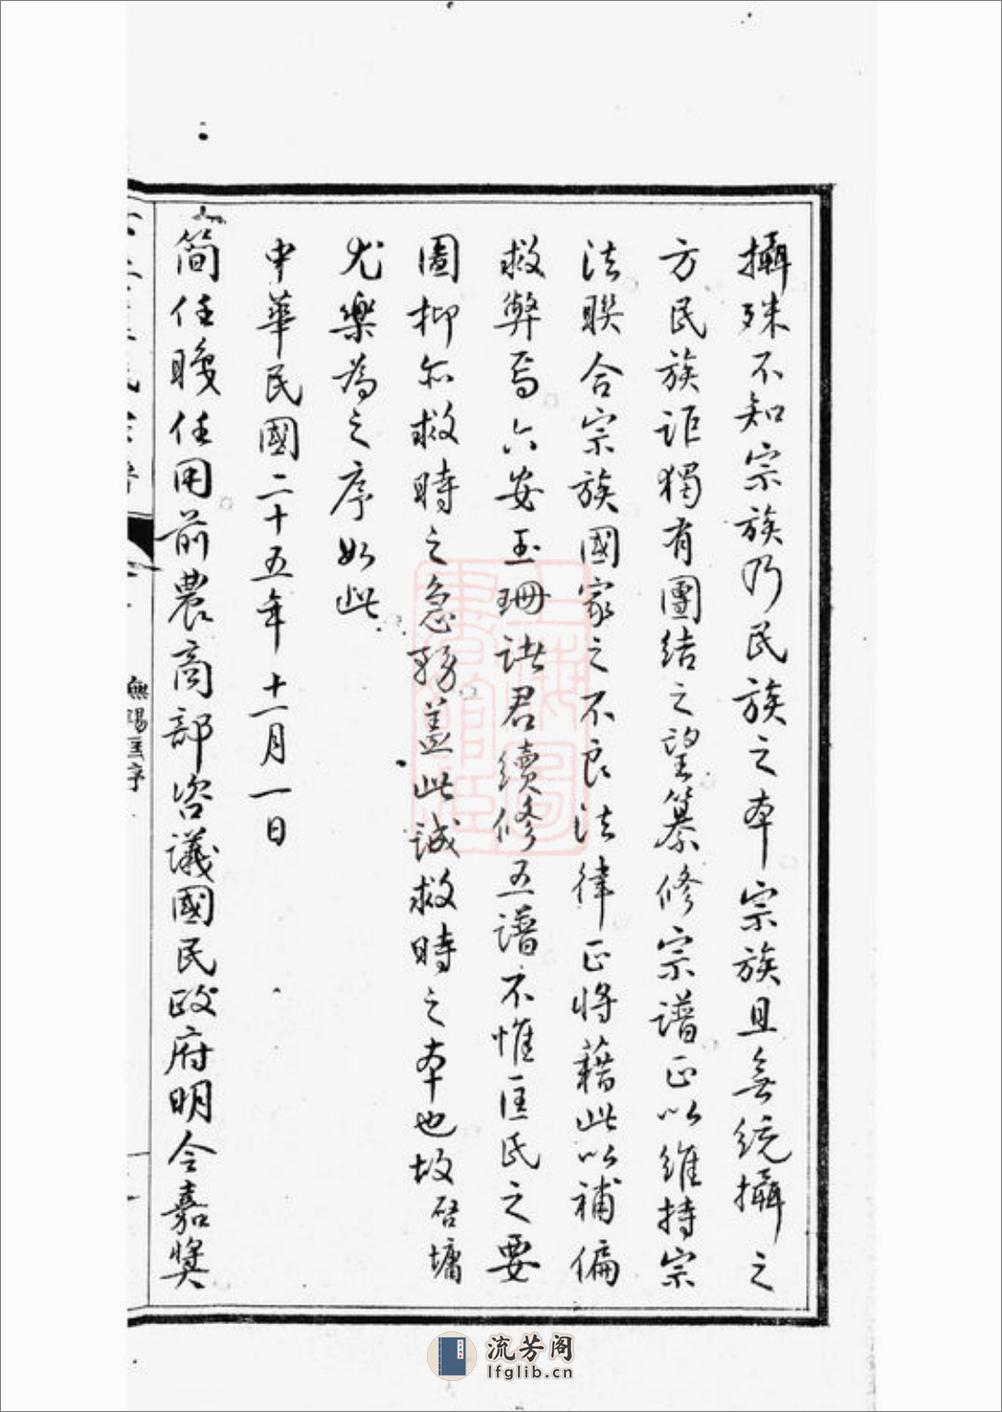 攝殊不知宗族乃民族之本宗族且無統攝之
方民族詎獨有團結之望纂修宗譜正以維持宗
法聯合宗族國家之不良法律正將藉此以補偏
救弊焉六安玉珊諸君續修互譜不惟匡氏之要
圖抑亦救時之急務蓋此誠救時之本也故啓墉
尤樂為之序如此
中華民國二十五年十一月一日
簡任職任用前農商部咨議國民政府明令嘉獎
無錫匡序
上海圖書館藏
流芳阁
lfglib.cn